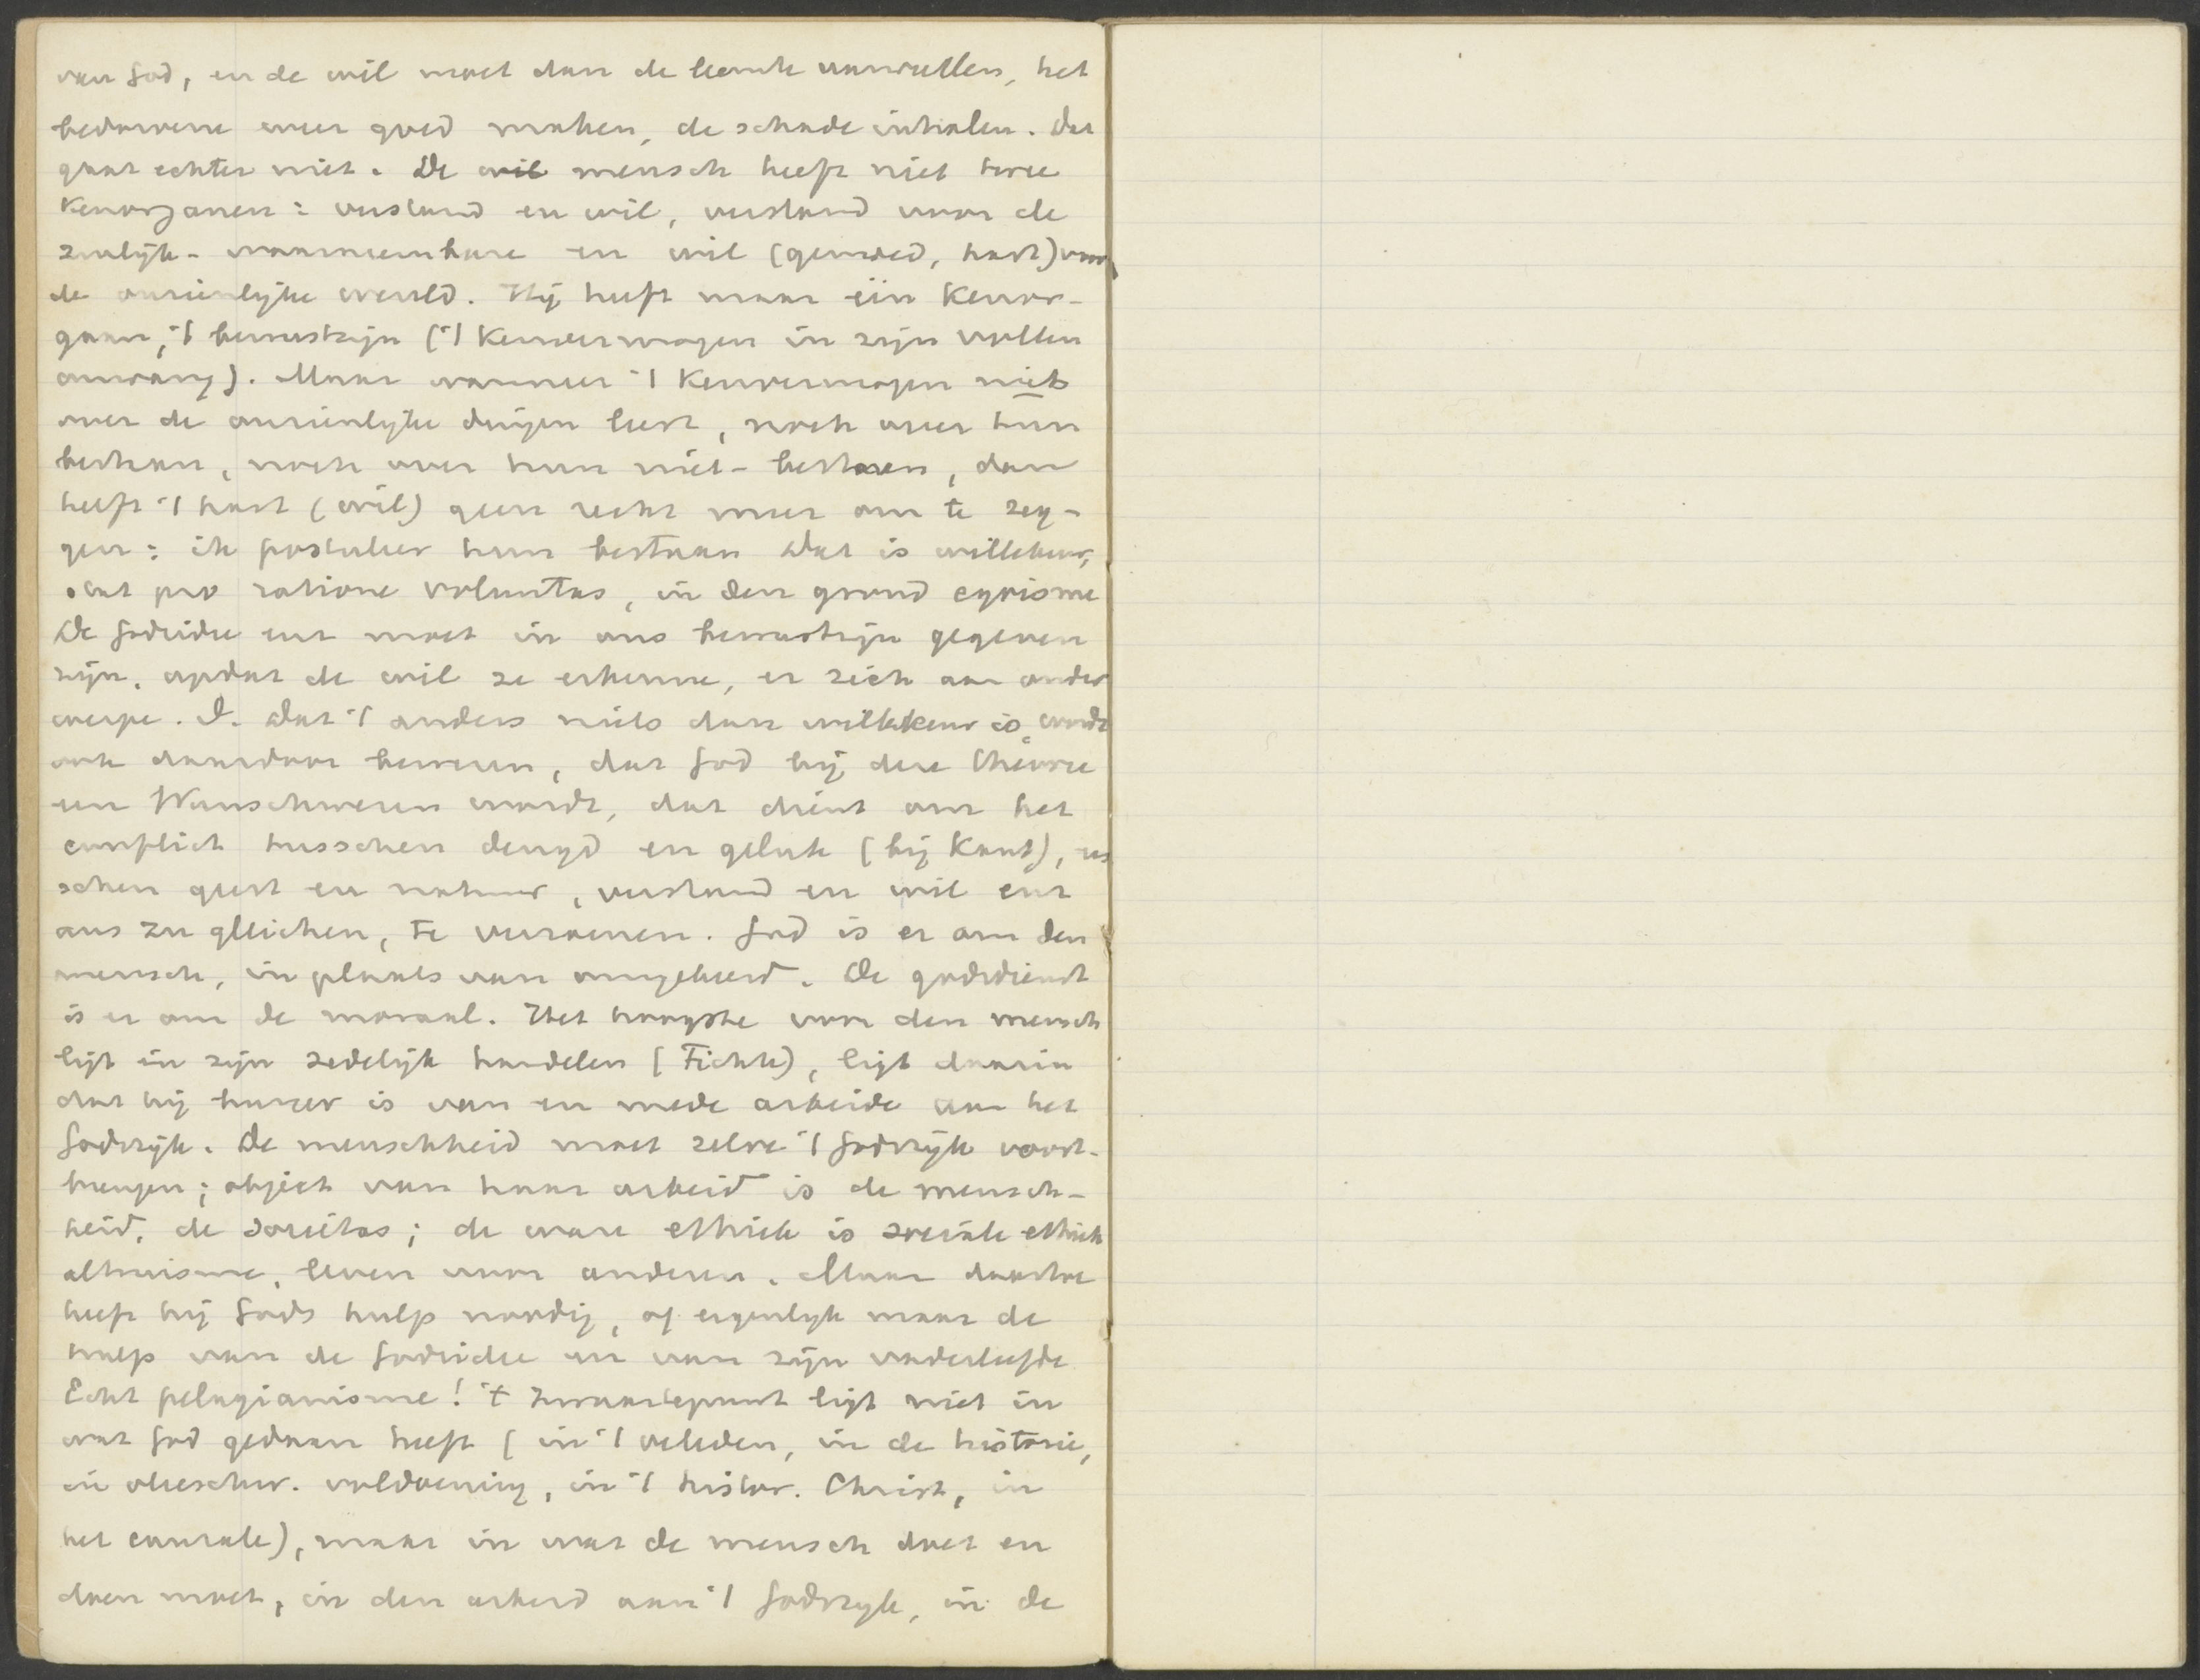 van God, en de wil moet dan de leemte aanvullen, het
bedorvene weer goed maken, de schade inhalen. Dat
gaat echter niet. De wil mensch heeft niet twee
Kenorganen: verstand en wil, verstand voor de
zinlijk-waarneembare en wil (gemoed, hart) voor
de onzienlijke wereld. Hij heeft maar één Kenor-
gaan, 't bewustzijn ('t Kenvermogen in zijn vollen
omvang). Maar wanneer 't Kenvermogen niets
over de onzienlijke dingen leert, noch over hun
bestaan, noch over hun niet-bestaan, dan
heeft 't hart (wil) geen recht meer om te zeg-
gen: ik postuleer hun bestaan dat is willekeur,
stat pro ratione voluntas, in den grond egoisme
De Godsidee enz moet in ons bewustzijn gegeven
zijn, opdat de wil ze erkenne, er zich aan onder
werpe. Dat 't anders niets dan willekeur is, wordt
ook daardoor bewezen, dat God bij deze theorie
een Wunschwesen wordt, dat dient om het
conflict tusschen deugd en geluk (bij Kant), tus
schen geest en natuur, verstand en wil enz
aus zu gleichen, te verzoenen. God is er om den
mensch, in plaats van omgekeerd. De godsdienst
is er om de moraal. Het hoogste voor den mensch
ligt in zijn zedelijk handelen (Fichte), ligt daarin
dat hij burger is van en mede arbeide aan het
Godsrijk. De menschheid moet zelve 't Godsrijk voort-
brengen; object van haar arbeid is de mensch-
heid, de societas; de ware ethiek is sociale ethiek
altruisme, leven voor anderen. Maar daartoe
heeft hij Gods hulp noodig, of eigenlijk maar de
hulp van de Godsidee en van zijn vaderliefde
Echt pelagianisme! 't zwaartepunt ligt niet in
wat God gedaan heeft (in 't verleden, in de historie,
in voldoening, in 't histor. Christ, in
het causale), maar in wat de mensch doet en
doen moet, in den arbeid aan 't Godsrijk, in de